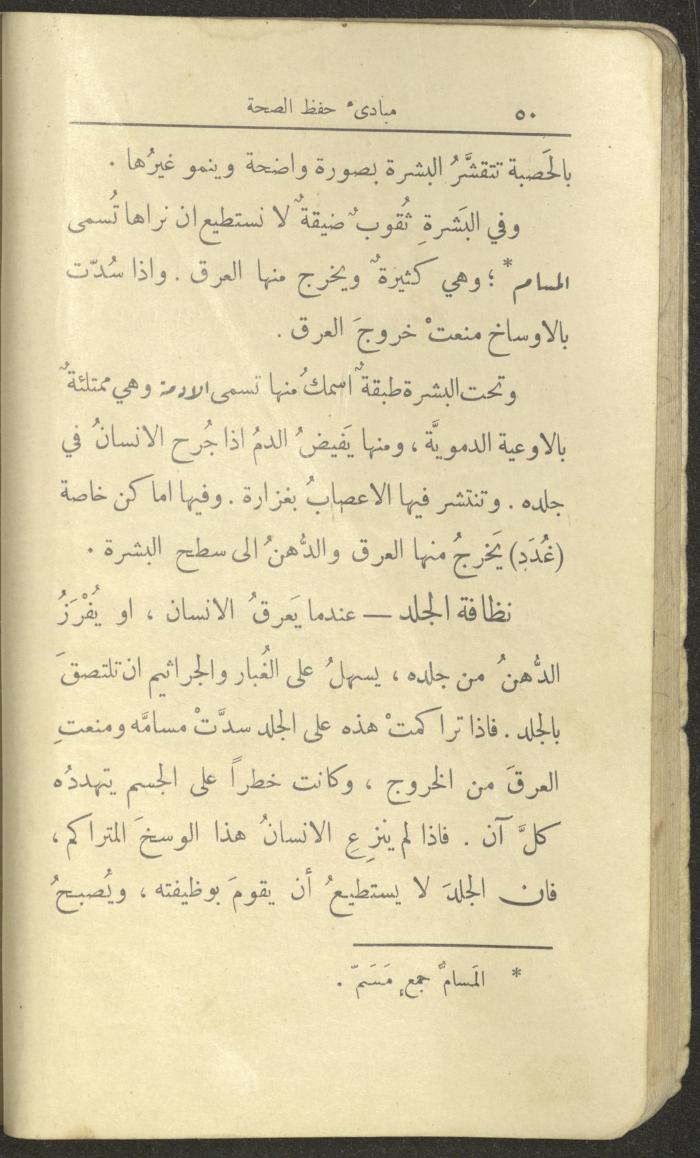 ٥٠ مبادىء حفظ الصحة
بالحَصبة تتقشَّرُ البشرة بصورة واضحة وينمو غيرُها .
وفي البَشرةِ ثُقوبٌ ضيقةٌ لا نستطيع ان نراها تُسمى
المسام * ؛ وهي كثيرةٌ ويخرج منها العرق . واذا سُدّت
بالاوساخ منعتْ خروجَ العرق .
وتحت البشرة طبقةٌ اسمكُ منها تسمى الادمة وهي ممتلئةٌ
بالاوعية الدمويَّة ، ومنها يَفيضُ الدمُ اذا جُرح الانسانُ في
جلده . وتنتشر فيها الاعصابُ بغزارة . وفيها اماكن خاصة
(غُدَد) يَخرجُ منها العرق والدُّهنُ الى سطح البشرة .
نظافة الجلد — عندما يَعرقُ الانسان ، او يُفْرَزُ
الدُّهنُ من جلده ، يسهلُ على الغُبار والجراثيم ان تلتصقَ
بالجلد . فاذا تراكمتْ هذه على الجلد سدَّتْ مسامَّه ومنعتِ
العرقَ من الخروج ، وكانت خطراً على الجسم يتهددُه
كلَّ آن . فاذا لم ينزعِ الانسانُ هذا الوسخَ المتراكم ،
فان الجلدَ لا يستطيعُ أن يقومَ بوظيفته ، ويُصبحُ
* المَسامُّ جمع مَسَمّ .